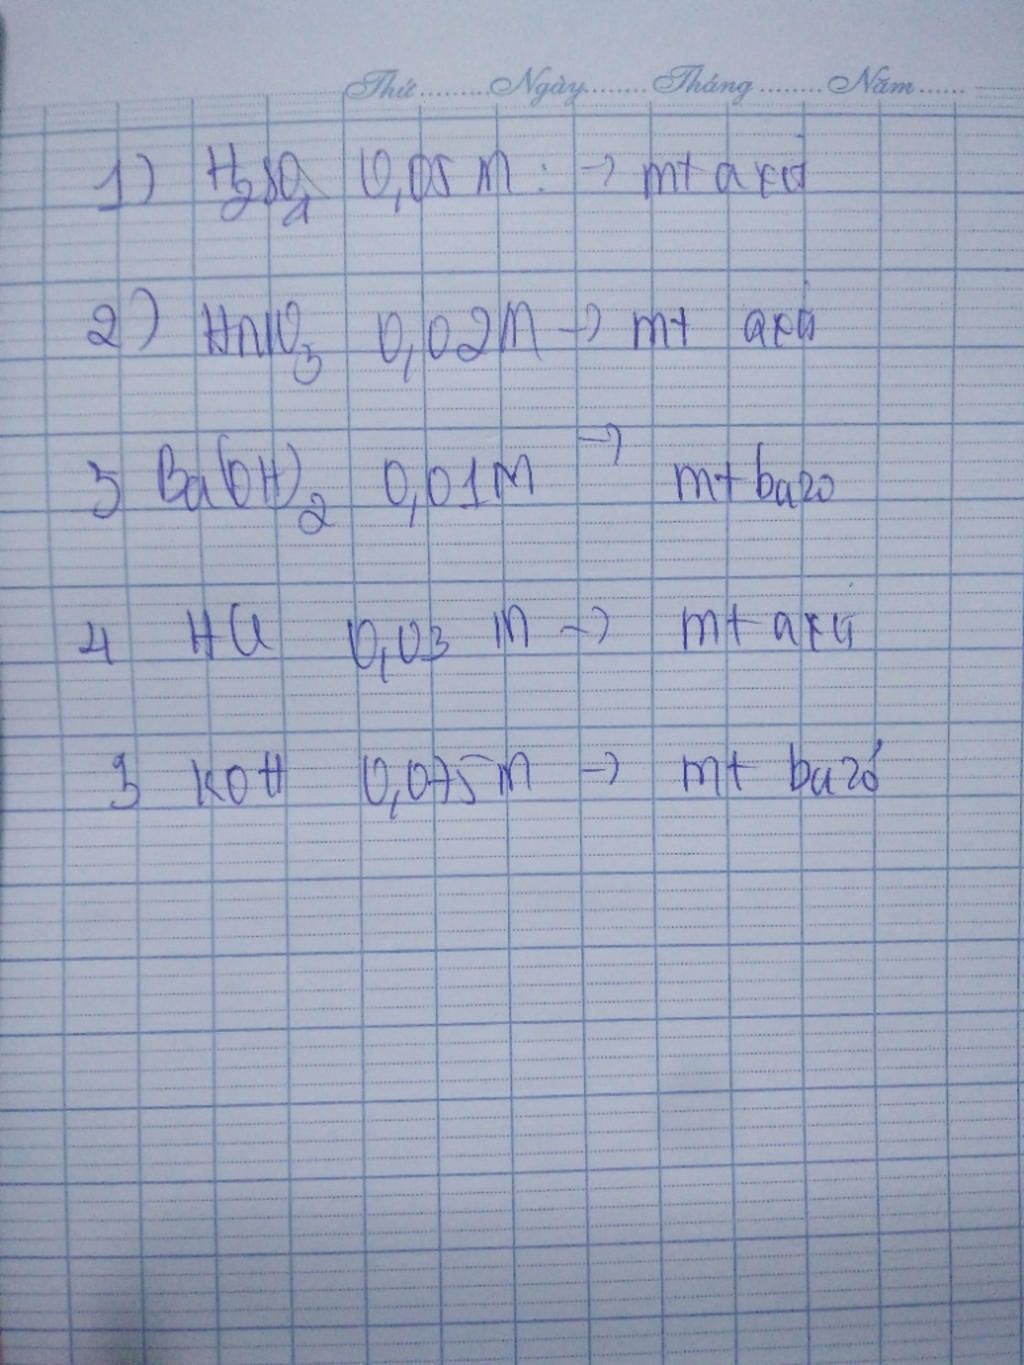 Thứ.........Ngày........Tháng........Năm......
1) H₂SO₄ 0,05 M : → mt axit
2) HNO₃ 0,02M → mt axit
3 Ba(OH)₂ 0,01M → mt bazo
4 HCl 0,03 M → mt axit
3 KOH 0,075M → mt bazó